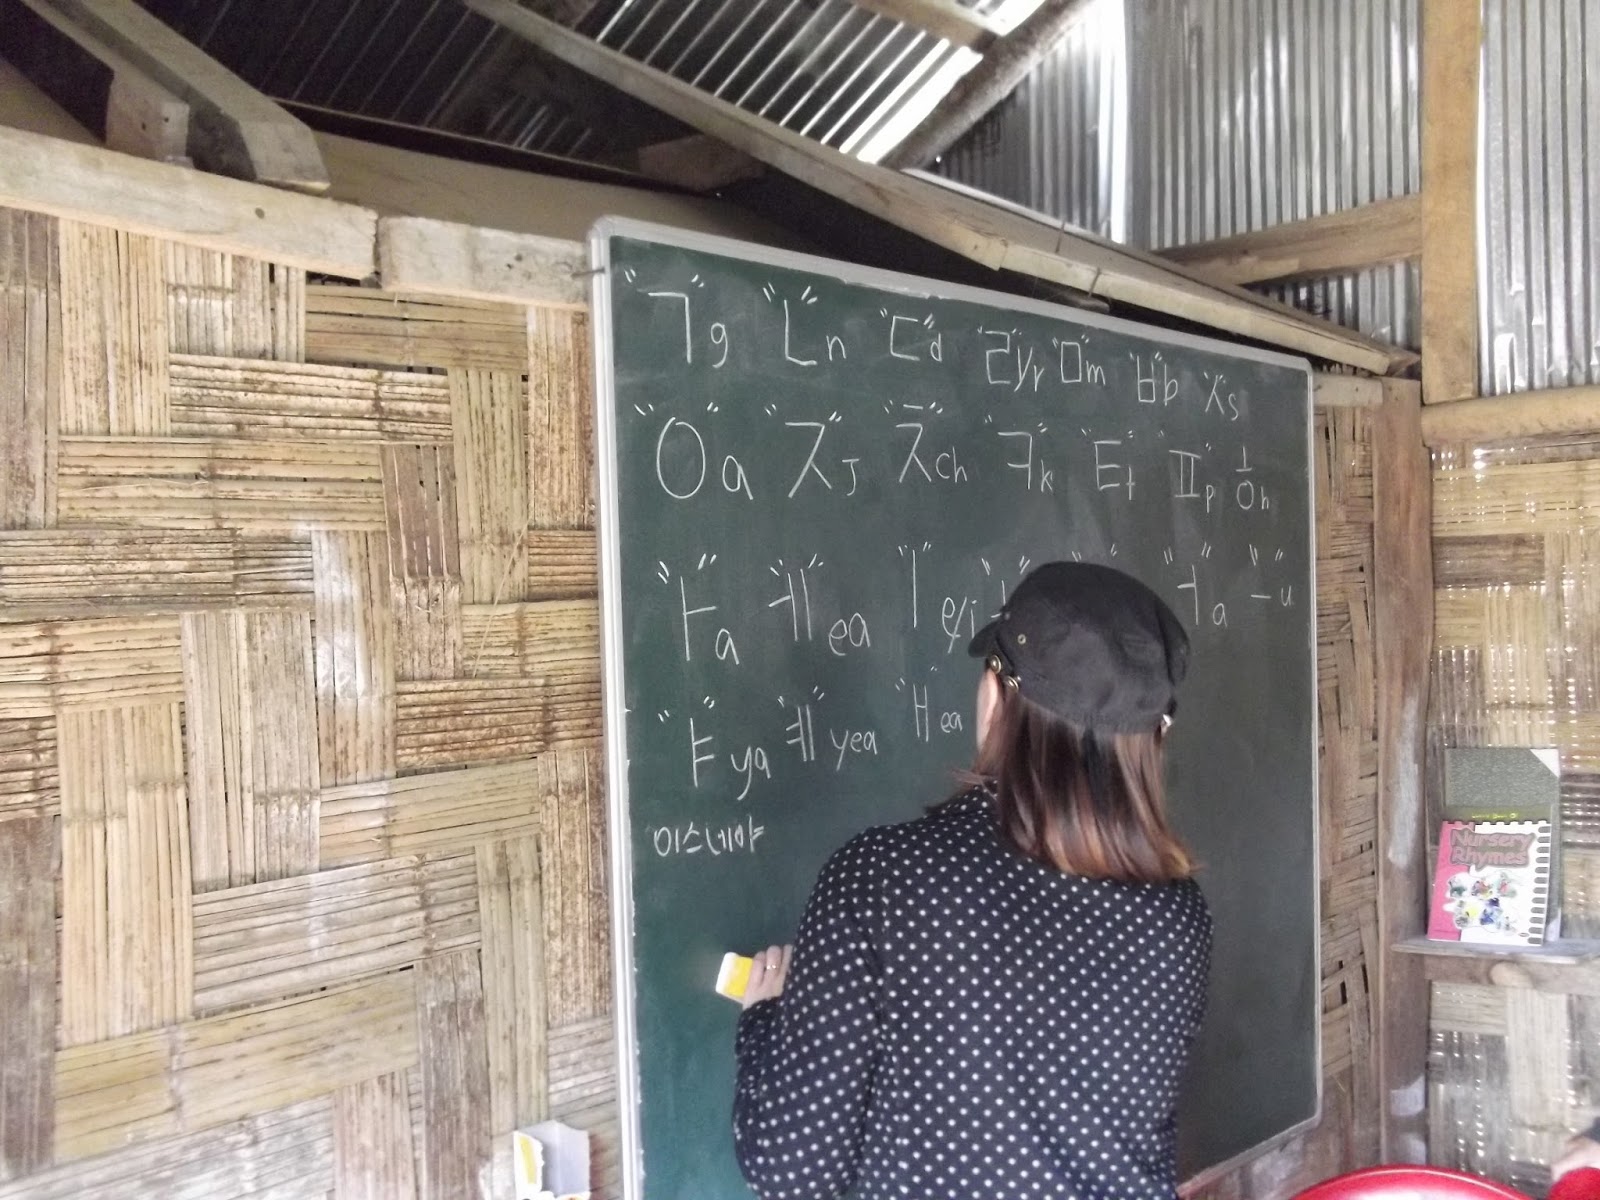 "ㄱ" g "ㄴ" n "ㄷ" d "ㄹ" y/r "ㅁ" m "ㅂ" b "ㅅ" s
"ㅇ" a "ㅈ" J "ㅊ" ch "ㅋ" k "ㅌ" t "ㅍ" p ㅎ h
"ㅏ" a "ㅔ" ea "ㅣ" e/i "ㅓ" a "ㅡ" u
"ㅑ" ya "ㅖ" yea "ㅐ" ea
미스네야
Nursery
Rhymes